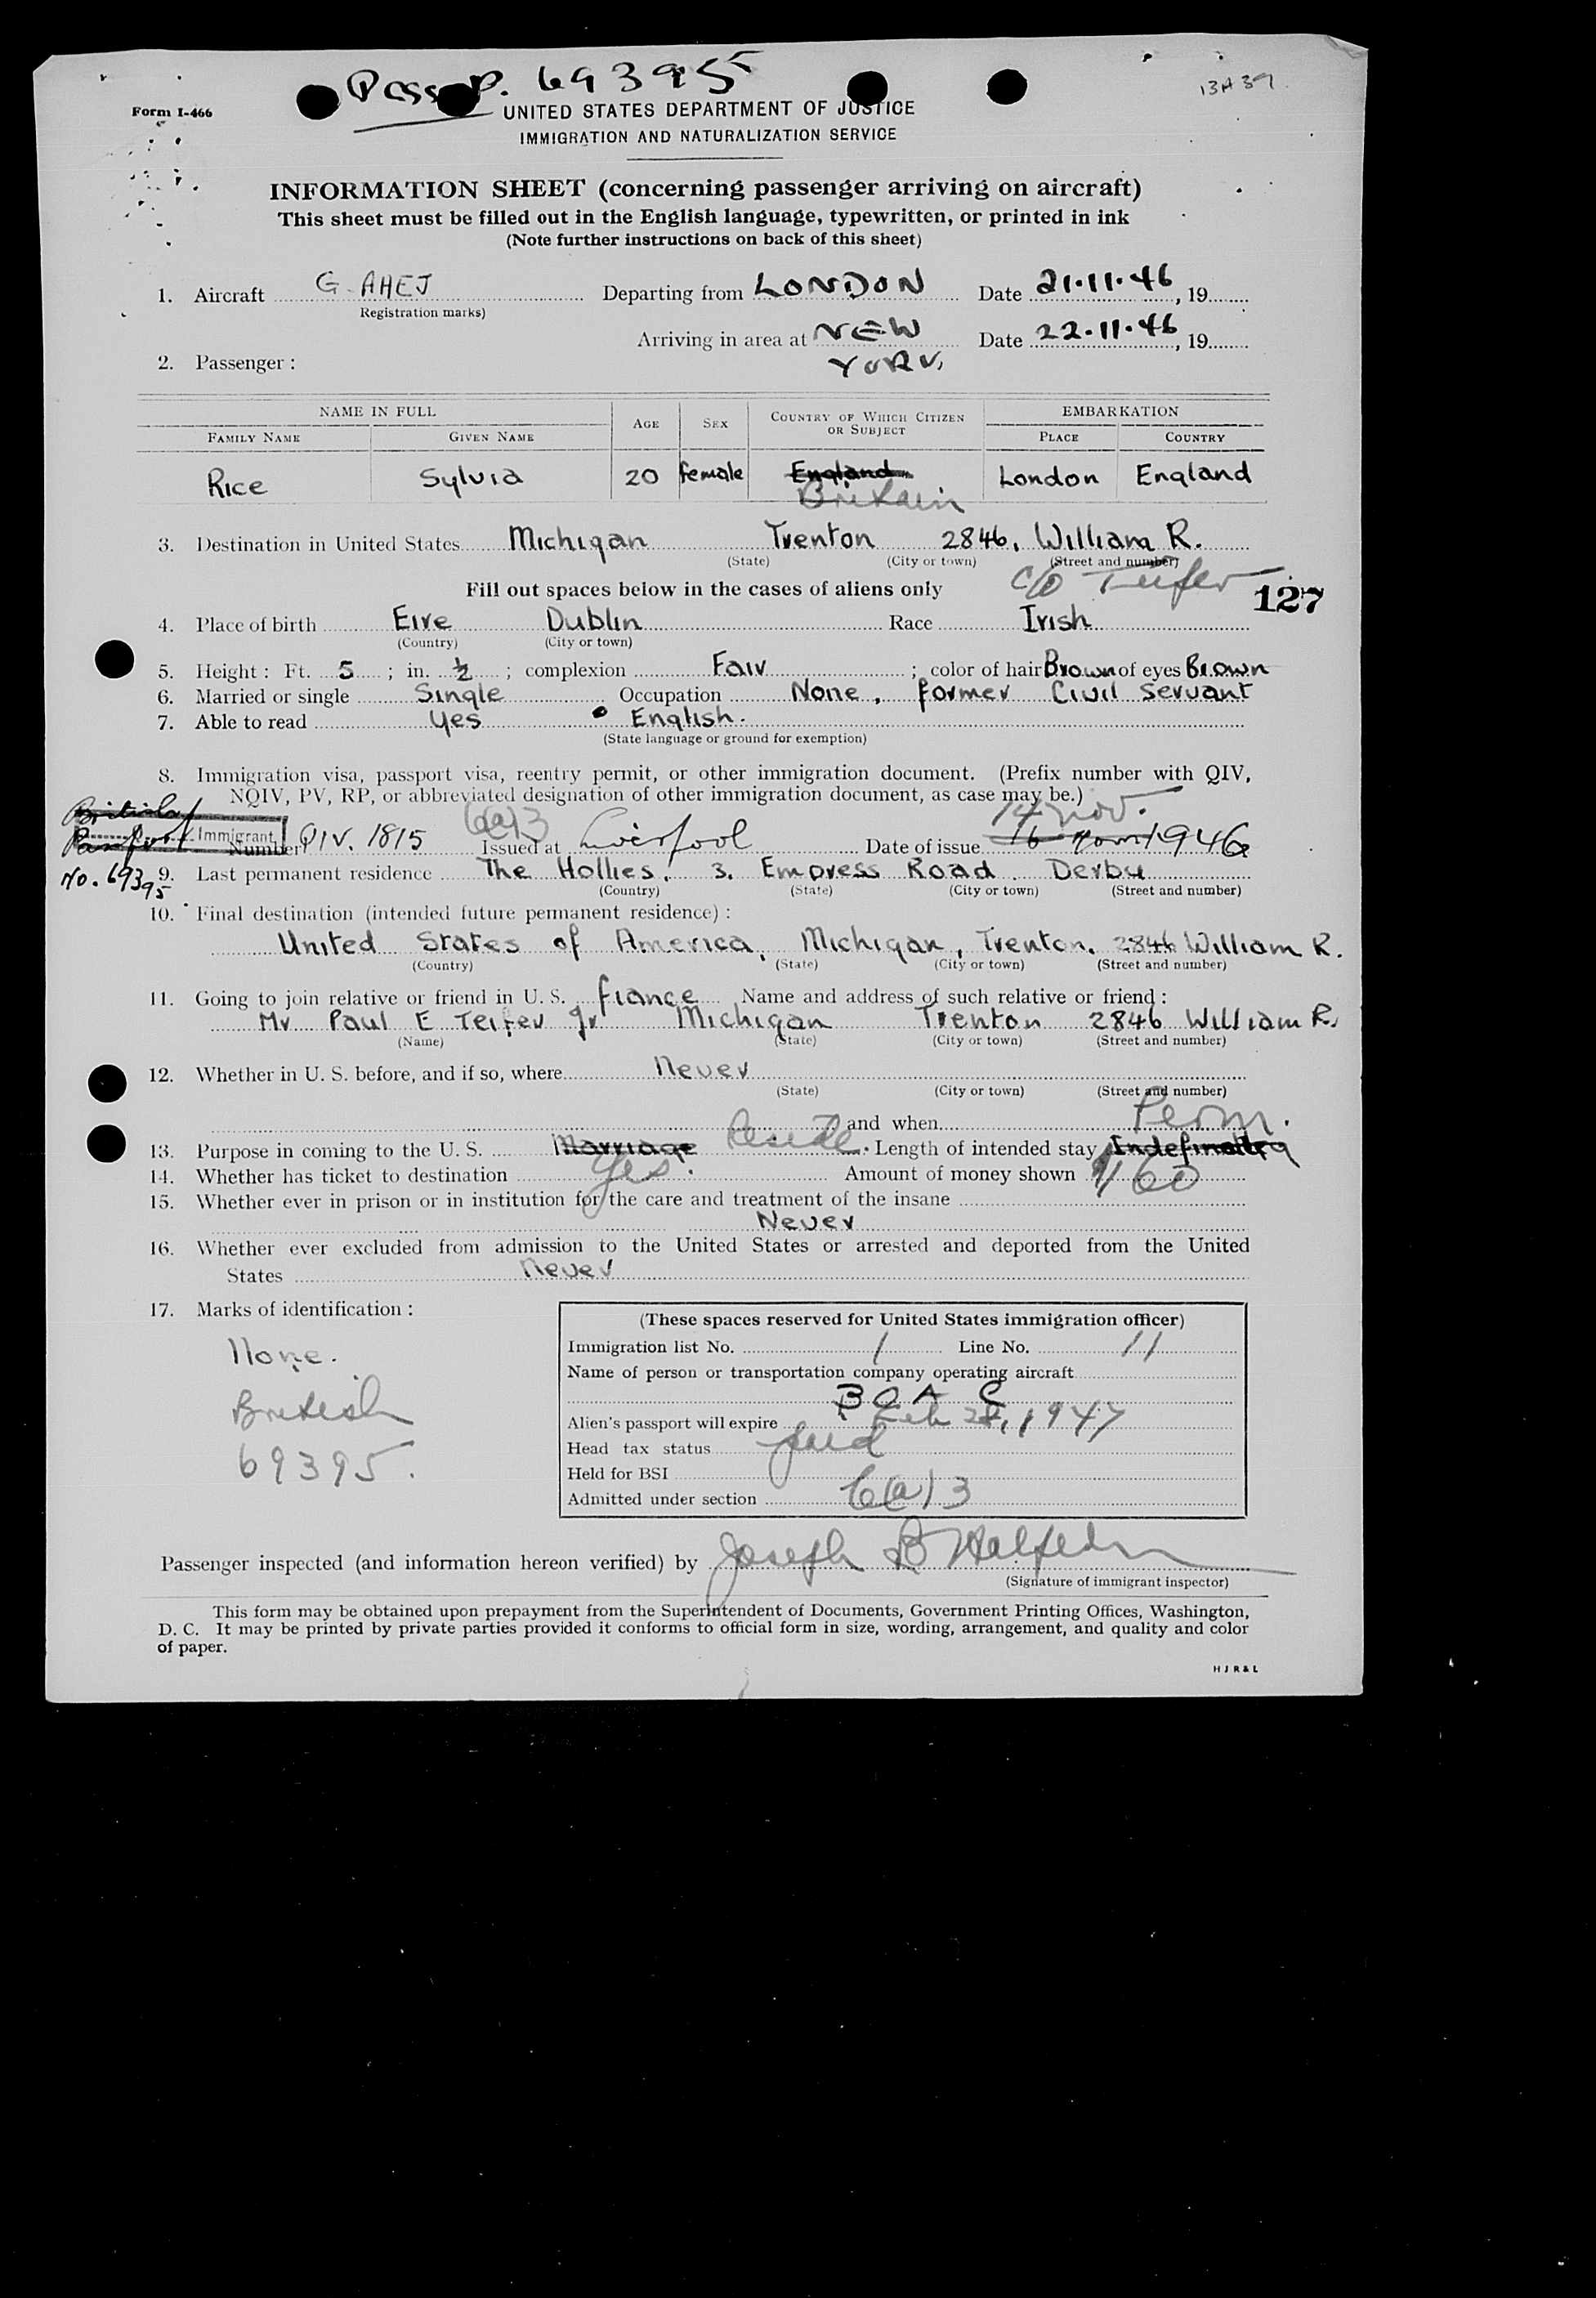 Pass P. 69395
13A39
Form I-466
UNITED STATES DEPARTMENT OF JUSTICE
IMMIGRATION AND NATURALIZATION SERVICE
INFORMATION SHEET (concerning passenger arriving on aircraft)
This sheet must be filled out in the English language, typewritten, or printed in ink
(Note further instructions on back of this sheet)
1. Aircraft G-AHEJ Departing from LONDON Date 21.11.46, 19
Registration marks)
Arriving in area at NEW YORK Date 22.11.46, 19
2. Passenger :
NAME IN FULL AGE SEX COUNTRY OF WHICH CITIZEN OR SUBJECT EMBARKATION
FAMILY NAME GIVEN NAME PLACE COUNTRY
Rice Sylvia 20 female England London England
Britain
3. Destination in United States Michigan Trenton 2846, William R.
(State) (City or town) (Street and number)
c/o Teifer
Fill out spaces below in the cases of aliens only
127
4. Place of birth Eire Dublin Race Irish
(Country) (City or town)
5. Height : Ft. 5 ; in. ½ ; complexion Fair ; color of hair Brown of eyes Brown
6. Married or single Single Occupation None, former Civil Servant
7. Able to read Yes English.
(State language or ground for exemption)
8. Immigration visa, passport visa, reentry permit, or other immigration document. (Prefix number with QIV,
NQIV, PV, RP, or abbreviated designation of other immigration document, as case may be.)
British Passport No. 69395
Immigrant
6(a)3 14 Nov.
Number QIV. 1815 Issued at Liverpool Date of issue 16 1946
9. Last permanent residence The Hollies. 3. Empress Road. Derby
(Country) (State) (City or town) (Street and number)
10. Final destination (intended future permanent residence) :
United States of America, Michigan, Trenton. 2846 William R.
(Country) (State) (City or town) (Street and number)
11. Going to join relative or friend in U. S. fiance Name and address of such relative or friend :
Mr Paul E Teifer Jr Michigan Trenton 2846 William R.
(Name) (State) (City or town) (Street and number)
12. Whether in U. S. before, and if so, where Never
(State) (City or town) (Street and number)
and when
Perm.
13. Purpose in coming to the U. S. Marriage Reside. Length of intended stay Indefinitely
14. Whether has ticket to destination Yes. Amount of money shown $160
15. Whether ever in prison or in institution for the care and treatment of the insane
Never
16. Whether ever excluded from admission to the United States or arrested and deported from the United
States Never
17. Marks of identification :
None.
British
69395.
(These spaces reserved for United States immigration officer)
Immigration list No. 1 Line No. 11
Name of person or transportation company operating aircraft
B O A C
Alien's passport will expire Feb 28, 1947
Head tax status paid
Held for BSI
Admitted under section 6(a)3
Passenger inspected (and information hereon verified) by Joseph B Halpern
(Signature of immigrant inspector)
This form may be obtained upon prepayment from the Superintendent of Documents, Government Printing Offices, Washington,
D. C. It may be printed by private parties provided it conforms to official form in size, wording, arrangement, and quality and color
of paper.
H J R & L